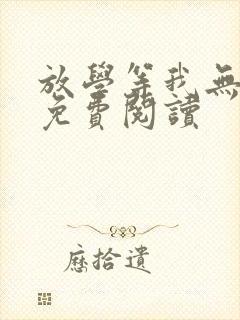 放學等我無
免費閱讀
歷拾遺